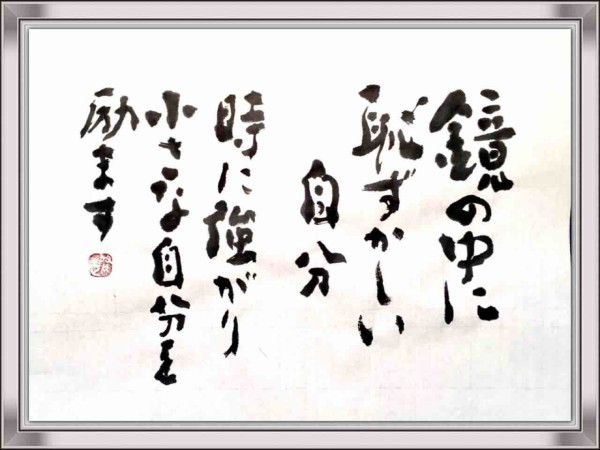 鏡の中に
恥ずかしい
自分
時に強がり
小さな自分を
励ます